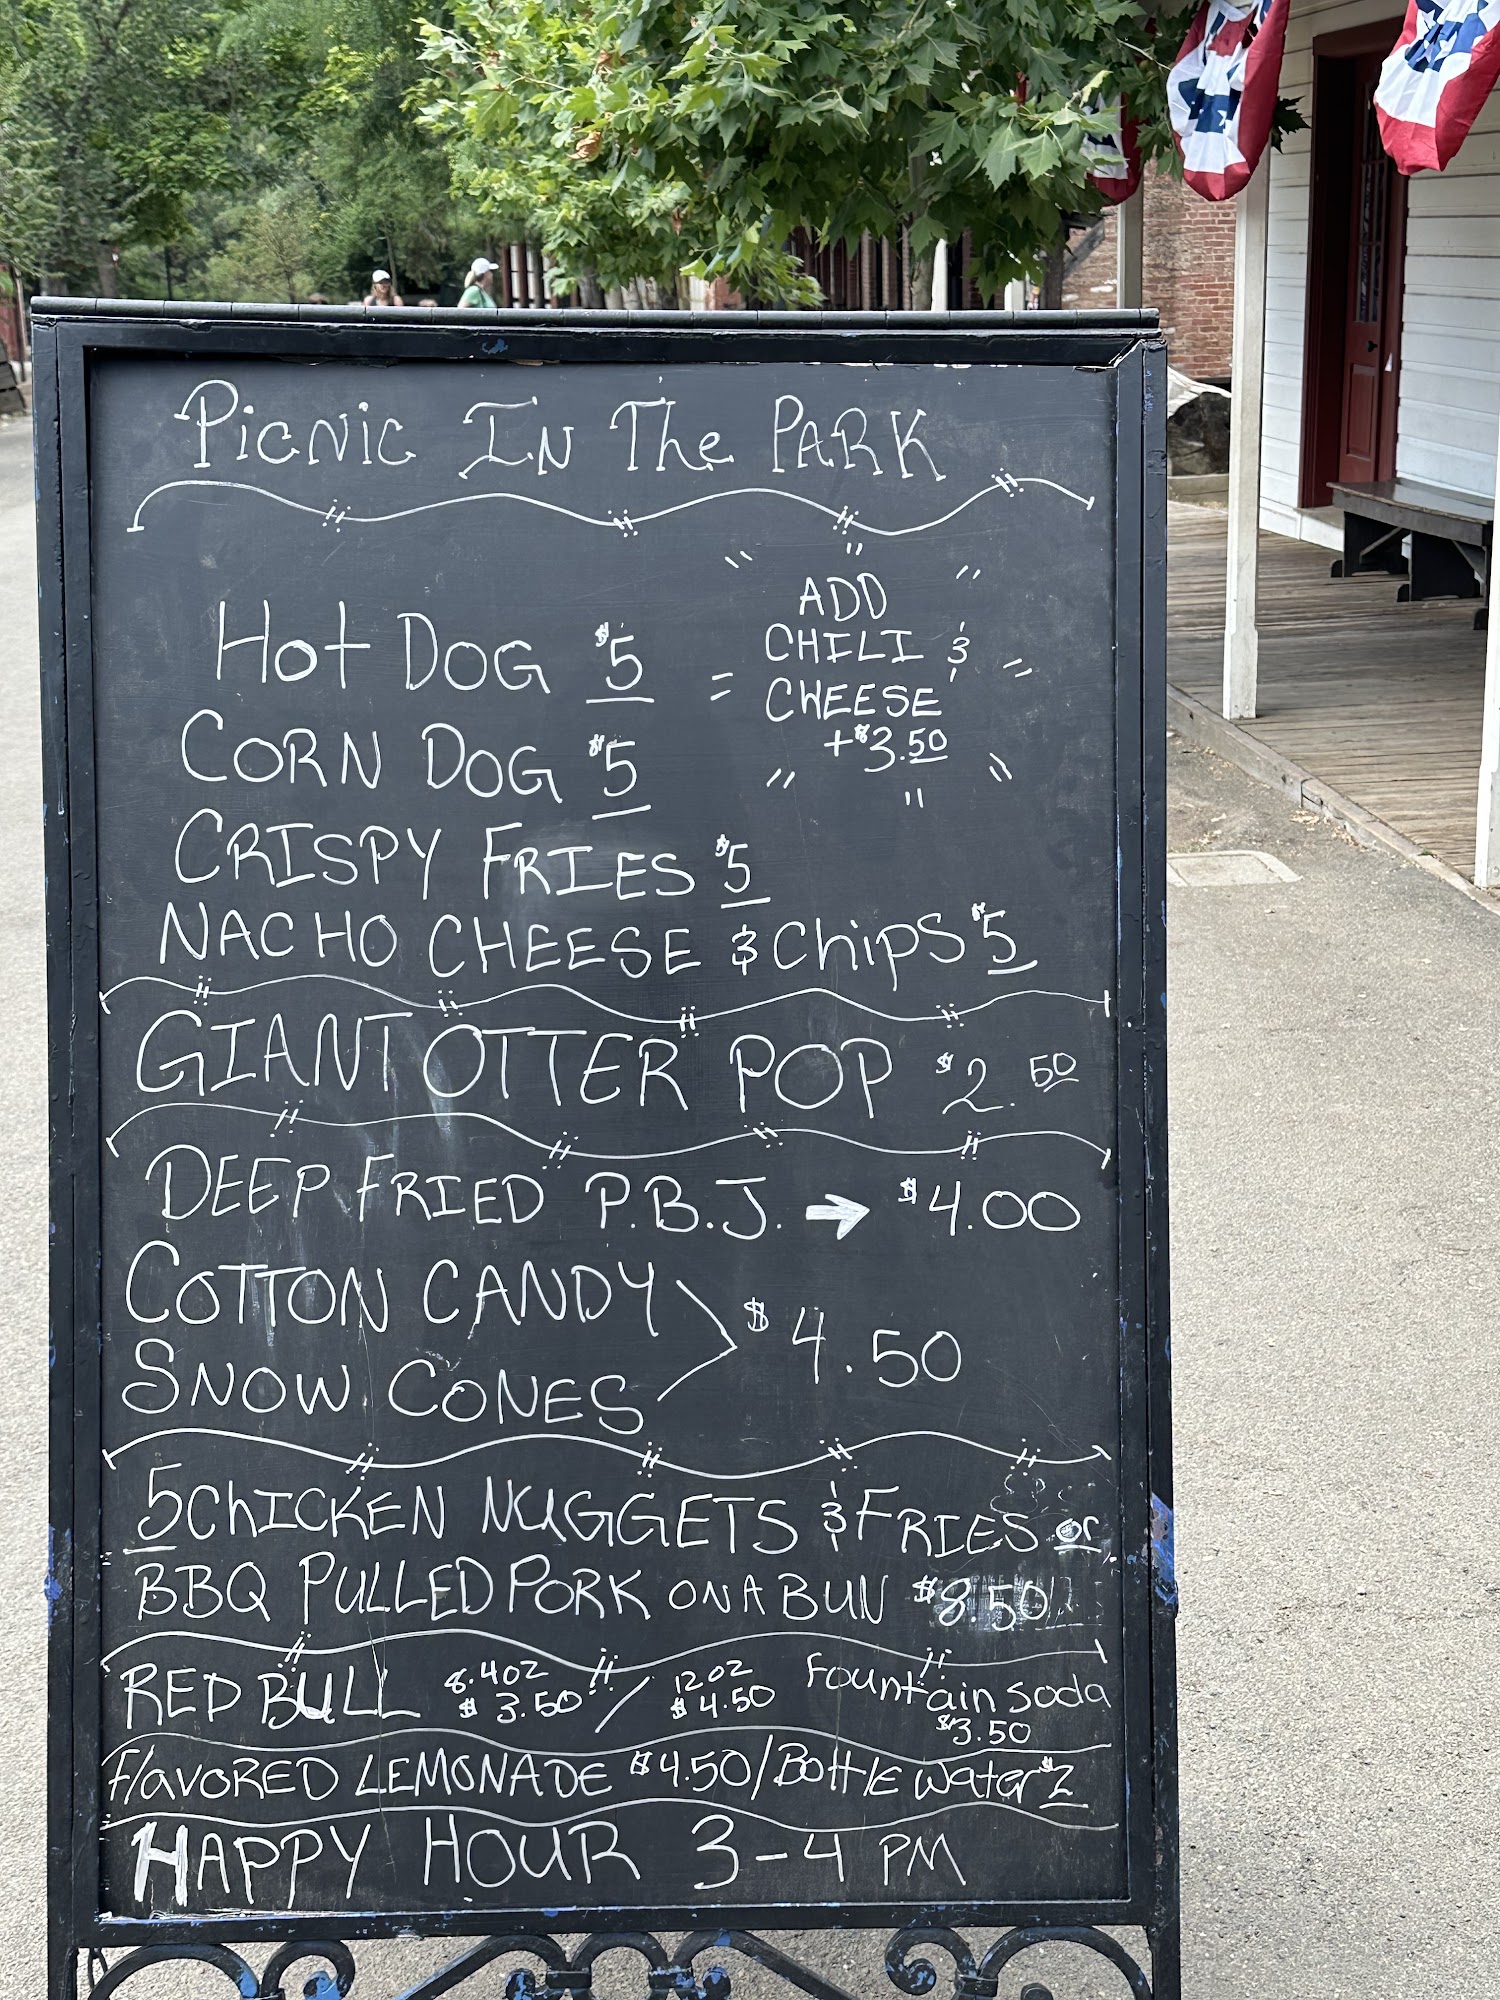 Picnic In The Park
Hot Dog $5
Add
Chili &
Cheese
+$3.50
Corn Dog $5
Crispy Fries $5
Nacho Cheese & Chips $5
Giant Otter Pop $2.50
Deep Fried P.B.J. → $4.00
Cotton Candy
Snow Cones
$4.50
5 Chicken Nuggets & Fries or
BBQ Pulled Pork on a Bun $8.50
Red Bull 8.4oz $3.50 / 12oz $4.50 Fountain Soda $3.50
Flavored Lemonade $4.50/Bottle Water $2
Happy Hour 3-4 PM